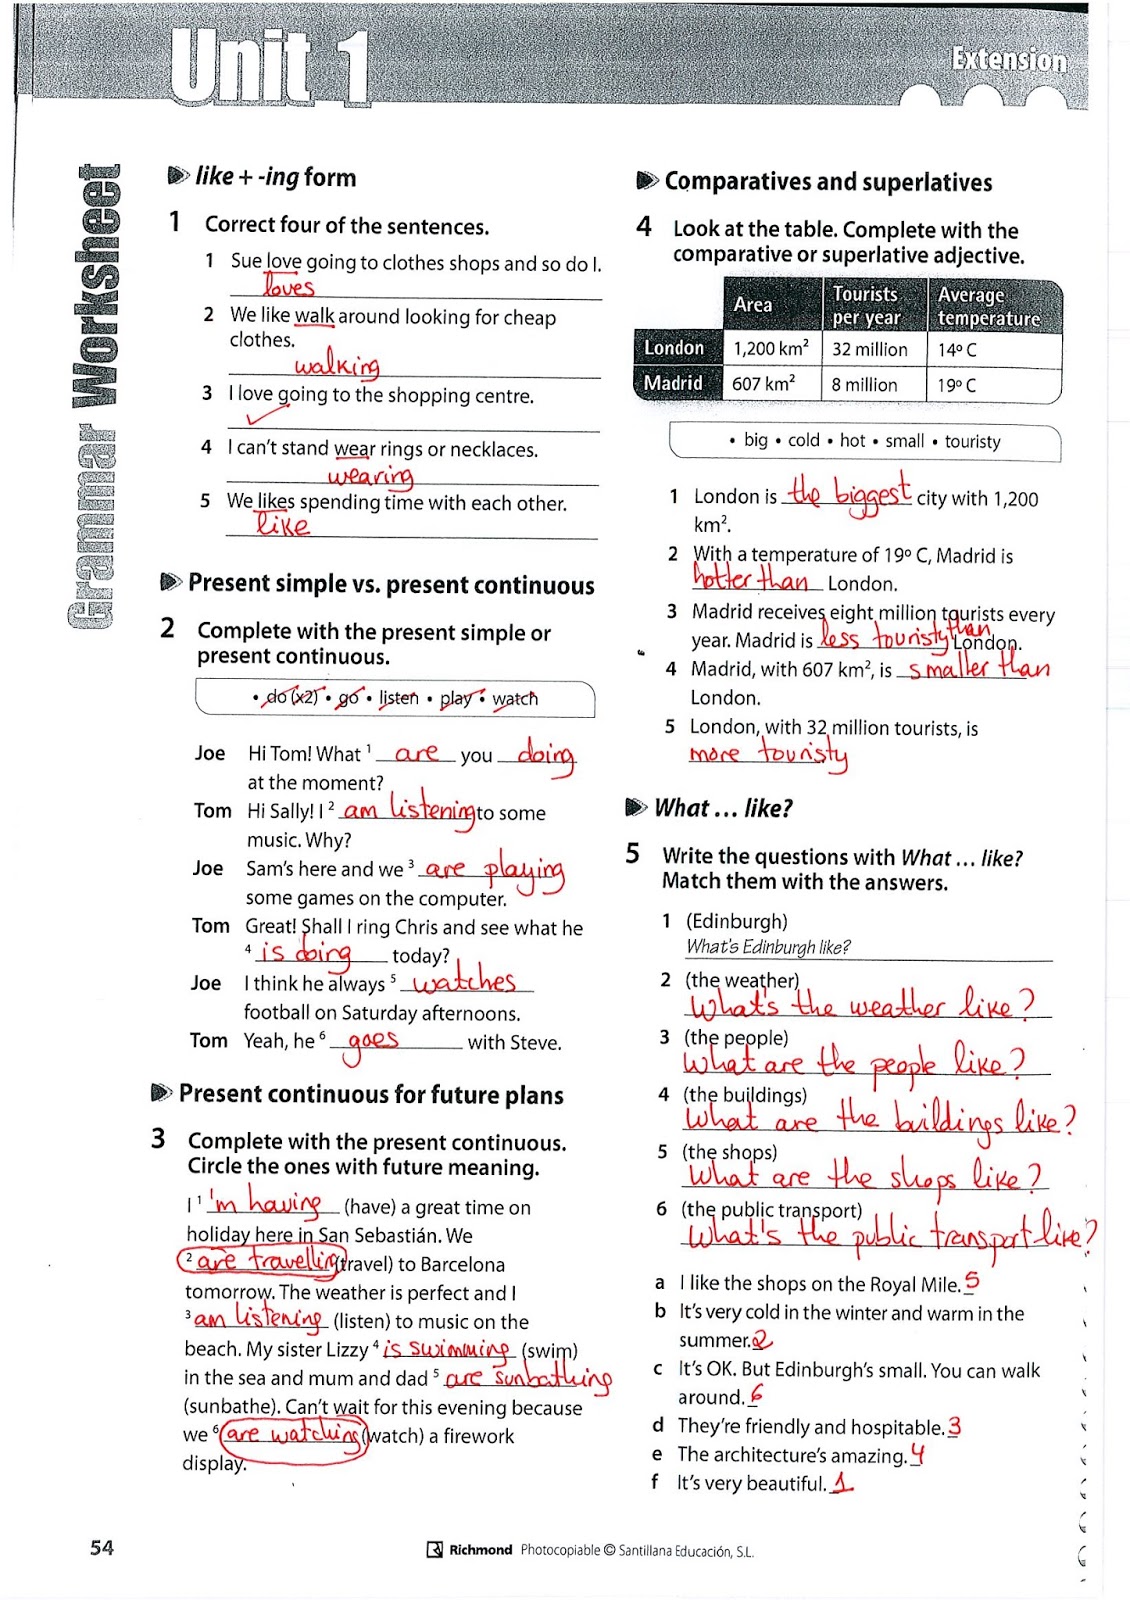 Unit 1
Extension
Grammar Worksheet
like + -ing form
1 Correct four of the sentences.
1 Sue love going to clothes shops and so do I.
loves
2 We like walk around looking for cheap
clothes.
walking
3 I love going to the shopping centre.
✓
4 I can't stand wear rings or necklaces.
wearing
5 We likes spending time with each other.
like
Present simple vs. present continuous
2 Complete with the present simple or
present continuous.
• do (x2) • go • listen • play • watch
Joe Hi Tom! What 1 are you doing
at the moment?
Tom Hi Sally! I 2 am listening to some
music. Why?
Joe Sam's here and we 3 are playing
some games on the computer.
Tom Great! Shall I ring Chris and see what he
4 is doing today?
Joe I think he always 5 watches
football on Saturday afternoons.
Tom Yeah, he 6 goes with Steve.
Present continuous for future plans
3 Complete with the present continuous.
Circle the ones with future meaning.
I 1 'm having (have) a great time on
holiday here in San Sebastián. We
2 are travelling (travel) to Barcelona
tomorrow. The weather is perfect and I
3 am listening (listen) to music on the
beach. My sister Lizzy 4 is swimming (swim)
in the sea and mum and dad 5 are sunbathing
(sunbathe). Can't wait for this evening because
we 6 are watching (watch) a firework
display.
Comparatives and superlatives
4 Look at the table. Complete with the
comparative or superlative adjective.
Area Tourists per year Average temperature
London 1,200 km² 32 million 14º C
Madrid 607 km² 8 million 19º C
• big • cold • hot • small • touristy
1 London is the biggest city with 1,200
km².
2 With a temperature of 19º C, Madrid is
hotter than London.
3 Madrid receives eight million tourists every
year. Madrid is less touristy than London.
4 Madrid, with 607 km², is smaller than
London.
5 London, with 32 million tourists, is
more touristy
What ... like?
5 Write the questions with What ... like?
Match them with the answers.
1 (Edinburgh)
What's Edinburgh like?
2 (the weather)
What's the weather like?
3 (the people)
What are the people like?
4 (the buildings)
What are the buildings like?
5 (the shops)
What are the shops like?
6 (the public transport)
What's the public transport like?
a I like the shops on the Royal Mile. 5
b It's very cold in the winter and warm in the
summer. 2
c It's OK. But Edinburgh's small. You can walk
around. 6
d They're friendly and hospitable. 3
e The architecture's amazing. 4
f It's very beautiful. 1
54
Richmond Photocopiable © Santillana Educación, S.L.